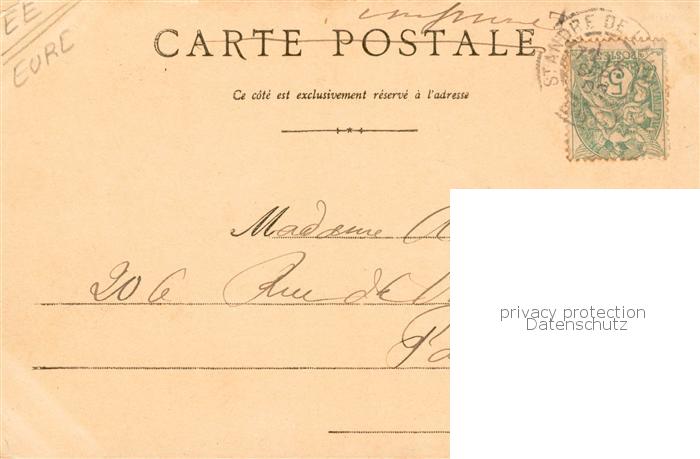 EE
EURE
imprimé
CARTE POSTALE
ST ANDRE DE L
POSTES
5
Ce côté est exclusivement réservé à l'adresse
Madame
206 Rue de
privacy protection
Datenschutz